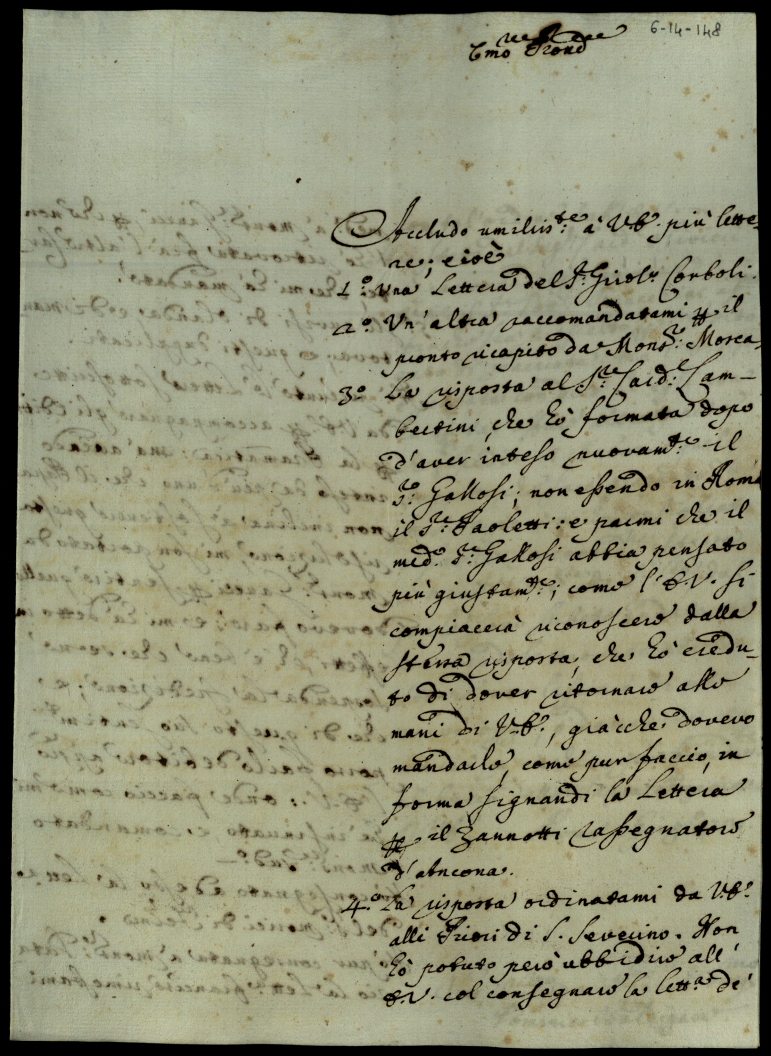 6-14-148
Emo Prone
Accludo umiliss.te à V.E. più lette-
re; e cioè
1.º Una Lettera del S.r Girol.º Corboli.
2.º Un' altra raccomandatami per il
pronto ricapito da Mons.r Morca
3.º La risposta al S.r Card.e Lam-
bertini, che hò formata dopo
d'aver inteso nuovam.te il
S.r Gallosi; non essendo in Roma
il S.r Paoletti: e parmi che il
med.º S.r Gallosi abbia pensato
più giustam.te; come l'E.V. si
compiacerà riconoscere dalla
stessa risposta, che hò credu-
to di dover ritornare alle
mani di V.E., giàcche dovevo
mandarle, come pur faccio, in
forma signandi la Lettera
per il Zannotti rassegnatore
d'Ancona.
4.º La risposta ordinatami da V.E.
alli Priori di S. Severino. Non
hò potuto però ubbidire all'
E.V. col consegnare la lett.a de'